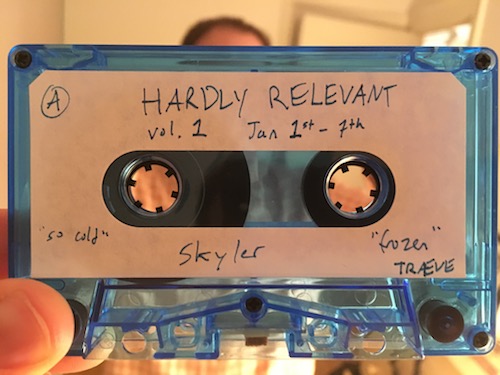 A
HARDLY RELEVANT
vol. 1 Jan 1st - 7th
"so cold" Skyler "frozen"
TRÆVE